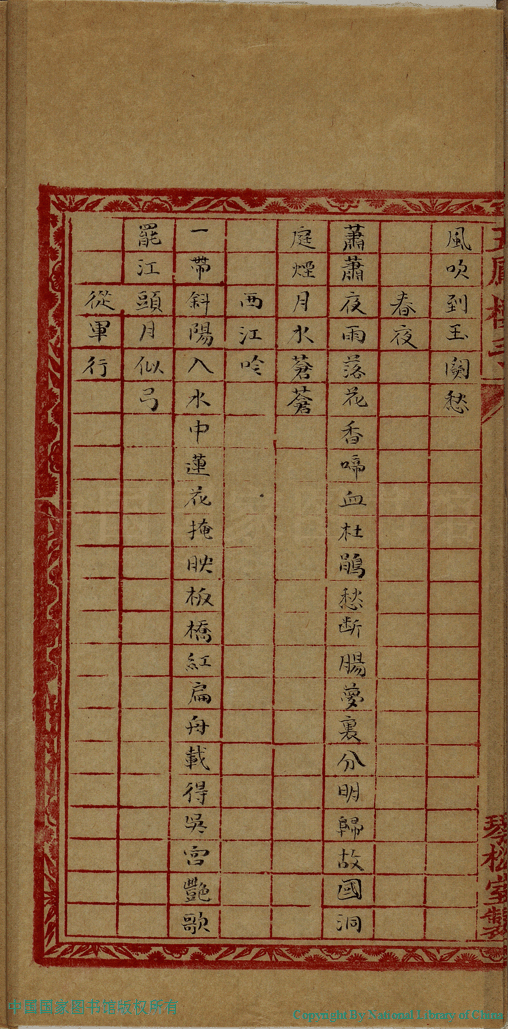 風吹到玉關愁
春夜
蕭蕭夜雨落花香啼血杜鵑愁断腸夢裏分明歸故國洞
庭煙月水蒼蒼
西江吟
一帶斜陽入水中蓮花掩映板橋紅扁舟載得吳宮艷歌
罷江頭月似弓
從軍行
琴松室製
中国国家图书馆版权所有
Copyright By National Library of China